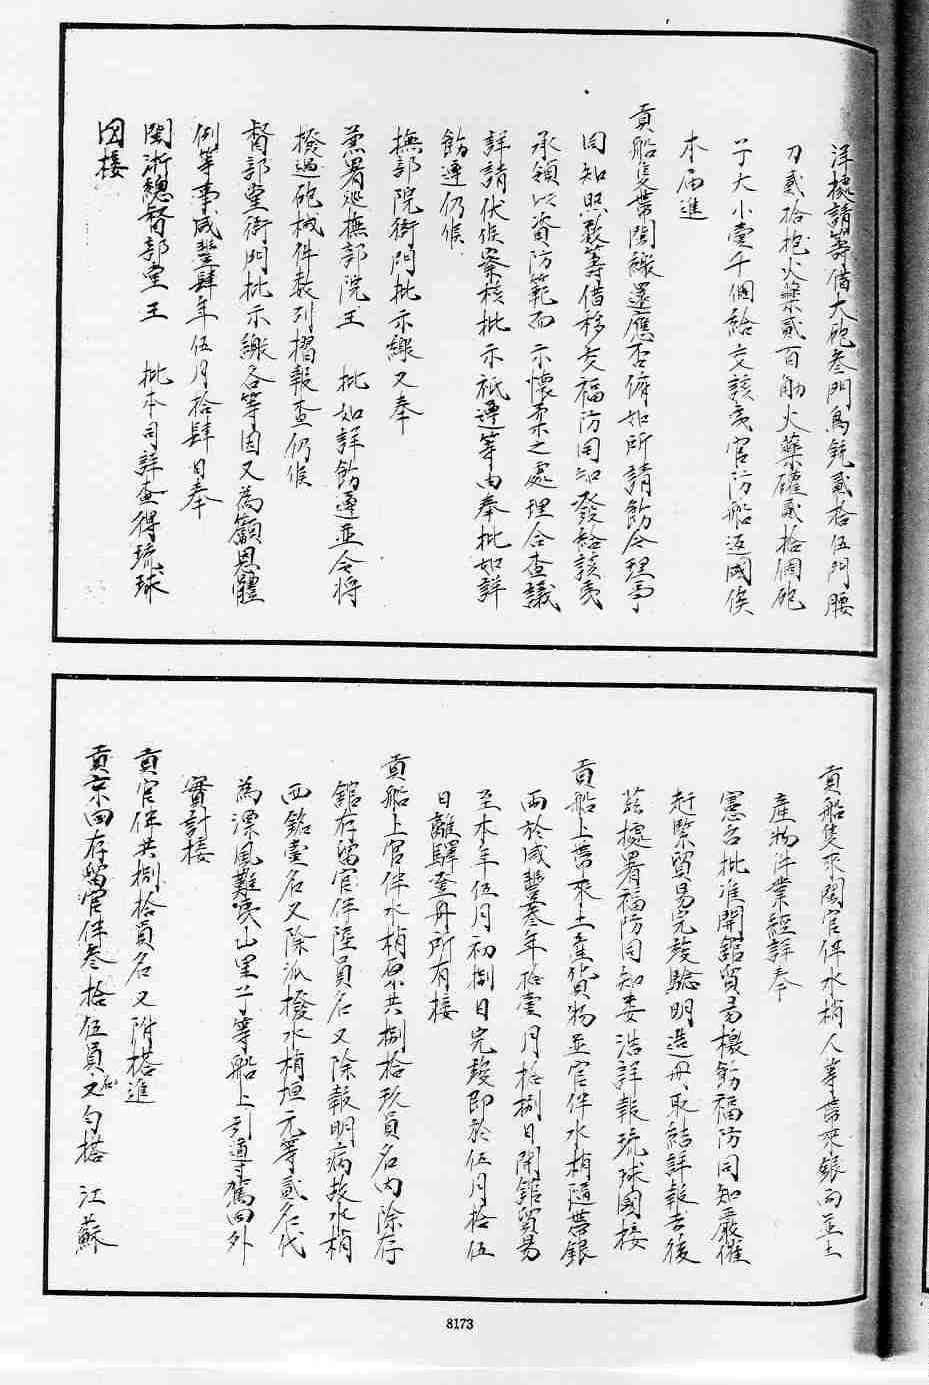 洋據請籌借大砲叁門鳥銃貳拾伍門腰
刀貳拾把火藥貳百觔火藥礶貳拾個砲
子大小壹千個給交該夷官防船返國俟
本届進
貢船隻帶閩繳還應否俯如所請飭令理事
同知照数籌借移交福防同知發給該夷
承領以資防範而示懷柔之處理合查議
詳請伏候察核批示祇遵等由奉批如詳
飭遵仍候
撫部院衙門批示繳又奉
兼署巡撫部院王 批如詳飭遵並令將
撥過砲械件数列摺報查仍候
督部堂衙門批示繳各等因又為籲恩體
例等事咸豐肆年伍月拾肆日奉
閩浙總督部堂王 批本司詳查得琉球
國接
貢船隻來閩官伴水梢人等帶來銀両並土
產物件業經詳奉
憲台批准開館貿易檄飭福防同知嚴催
赶緊貿易完竣驗明造册取結詳報去後
茲據署福防同知婁浩詳報琉球國接
貢船上帶來土產貨物並官伴水梢隨帶銀
両於咸豐叁年拾壹月拾捌日開館貿易
至本年伍月初捌日完竣即於伍月拾伍
日離驛登舟所有接
貢船上官伴水梢原共捌拾玖員名内除存
館存留官伴陸員名又除報明病故水梢
西銘壹名又除派撥水梢垣元等貳名代
為漂風難夷山里子等船上引通事駕回外
實計接
貢官伴共捌拾員名又附搭進
貢京回存留官伴叁拾伍員名又勻搭 江蘇
8173